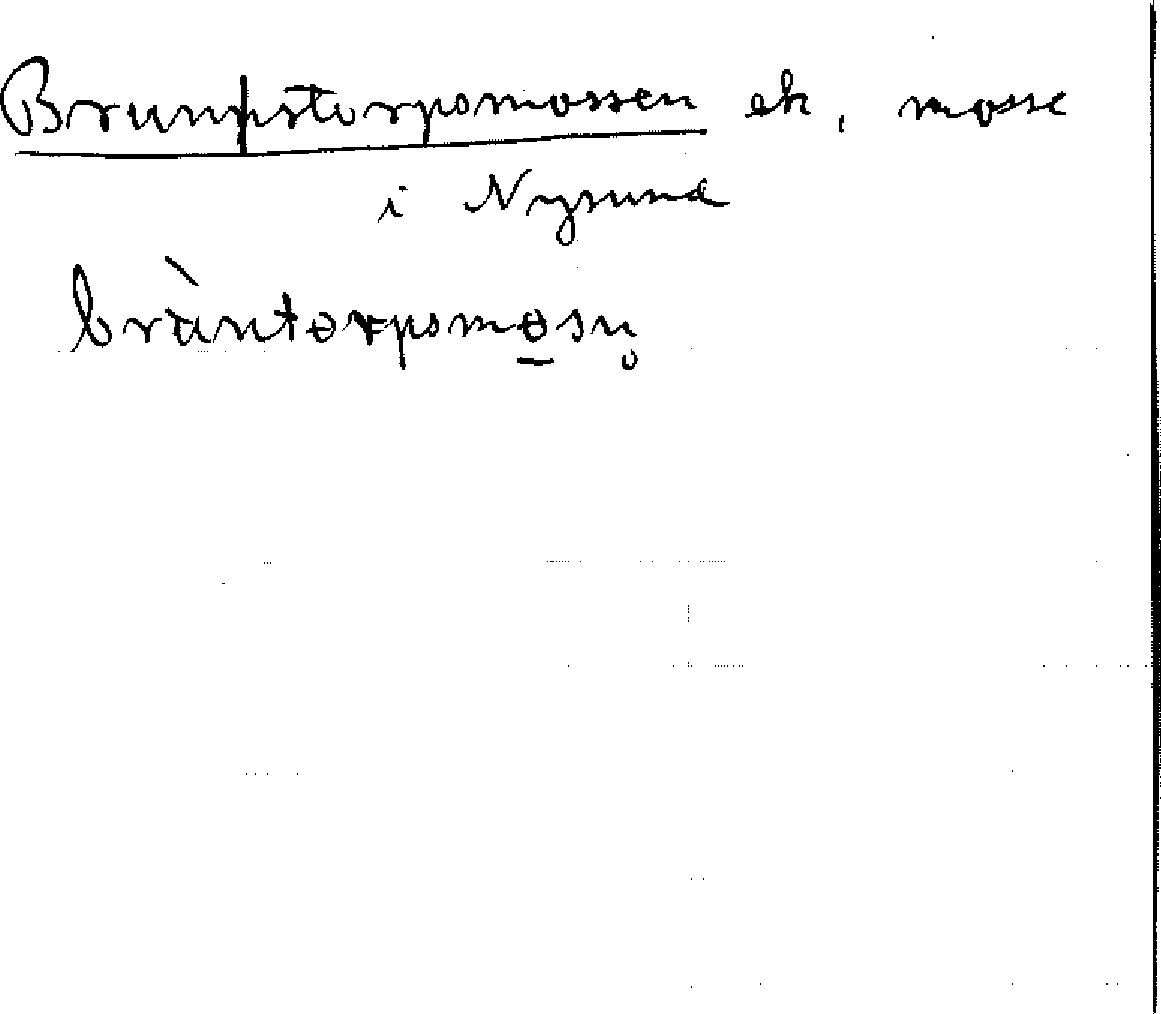 Brunnstorpsmossen ek, mosse
i Nysund
bràntorpsmosn̥